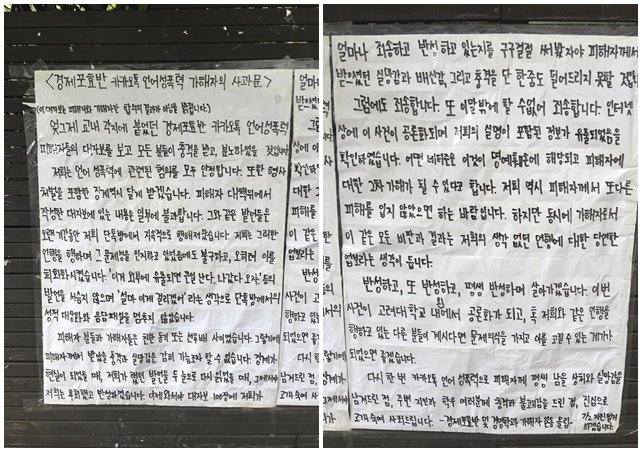 <경제포효반 카카오톡 언어성폭력 가해자의 사과문>
(이 대자보는 피해자와 가해자간 합의의 결과가 아님을 밝힙니다.)
엊그제 교내 각지에 붙었던 경제포효반 카카오톡 언어성폭력
피해자들의 대자보를 보고 모든 분들이 충격을 받고, 분노하였을 것입니다.
저희는 언어 성폭력에 관련된 혐의를 모두 인정합니다. 또한 형사
처벌을 포함한 징계역시 달게 받겠습니다. 피해자 대책위에서
작성한 대자보에 있는 내용은 일부에 불과합니다. 그와 같은 발언들은
오랜기간동안 저희 단톡방에서 지속적으로 행해져왔습니다. 저희는 그러한
언행을 행하며 그 문제점을 인지하고 있었음에도 불구하고, 오히려 이를
희화화시켰습니다. '이거 외부에 유출되면 큰일 난다. 나갔다 오자.' 등의
발언을 서슴지 않으며 '설마 이게 걸리겠어'라는 생각으로 단톡방에서의
성적 대상화와 음담패설을 멈추지 않았습니다.
피해자 분들과 가해자들은 전원 동기 또는 선후배 사이였습니다. 그렇기에
피해자께서 받았을 충격과 실망감을 감히 가늠조차 할 수 없습니다. 징계가
현실이 되었을 때, 저희가 했던 발언을 두 눈으로 다시 읽었을 때, 그제서야
저희는 후회했고 반성하였습니다. 이제와서야 대자보 100장에 저희가
얼마나 죄송하고 반성하고 있는지를 구구절절 써봤자야 피해자께서
받아셨던 실망감과 배신감, 그리고 충격을 단 한줌도 덜어드리지 못할 것입니다.
그럼에도 죄송합니다. 또 이말밖에 할 수 없어 죄송합니다. 인터넷
상에 이 사건이 공론화되며 저희의 실명이 포함된 정보가 유출되었음을
확인하였습니다. 어떤 네티즌은 이것이 명예훼손에 해당되고 피해자에
대한 2차 가해가 될 수 있다고 합니다. 저희 역시 피해자께서 또다른
피해를 입지 않았으면 하는 바람입니다. 하지만 동시에 가해자로서
이 같은 모든 비판과 결과는 저희의 생각 없던 언행에 대한 당연한
업보라는 생각이 듭니다.
반성하고, 또 반성하고, 평생 반성하며 살아가겠습니다. 이번
사건이 고려대학교 내외에서 공론화가 되고, 혹 저희와 같은 언행을
행하고 있는 다른 분들이 계시다면 문제의식을 가지고 이를 고칠 수 있는 계기가
되었으면 좋겠습니다.
다시 한 번 카카오톡 언어 성폭력으로 피해자께 평생 남을 상처와 실망감을
남겨드린 점, 주변 지인과 학우 여러분께 충격과 불쾌감을 드린 점, 진심으로
고개 숙여 사죄드립니다.